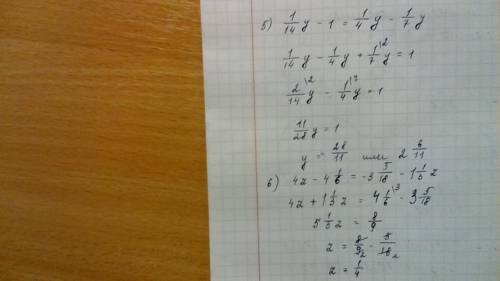 5) 1/14 y - 1 = 1/4 y - 1/7 y
1/14 y - 1/4 y + 1/7 \2 y = 1
2/14 \2 y - 1/4 \7 y = 1
11/28 y = 1
y = 28/11 или 2 6/11
6) 4z - 4 1/6 = -3 5/18 - 1 1/3 z
4z + 1 1/3 z = 4 1/6 \3 - 3 5/18
5 1/3 z = 8/9
z = 8/9 2 · 3/16 2
z = 1/4